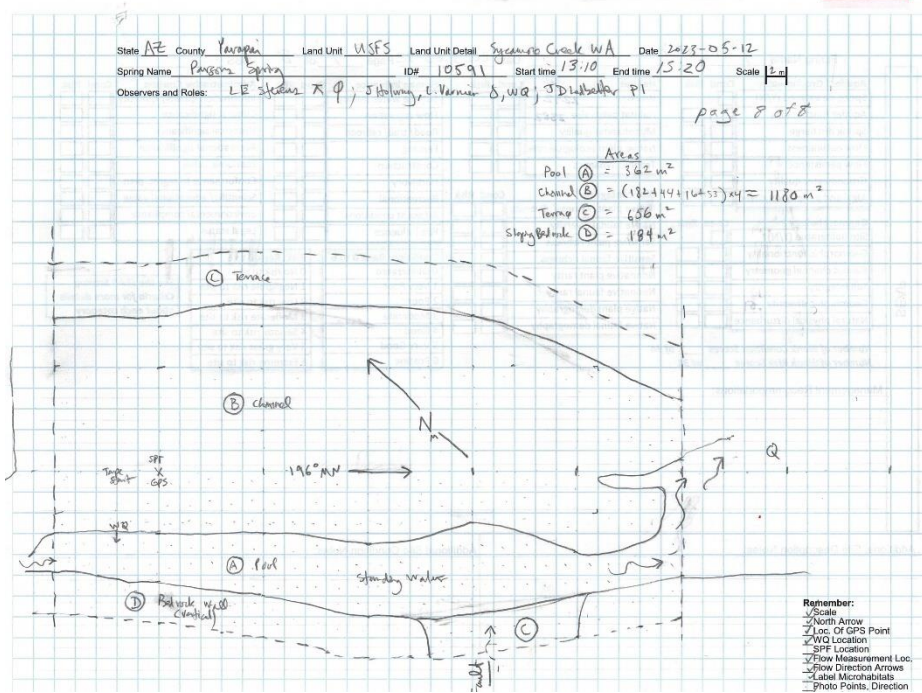 State AZ County Yavapai Land Unit USFS Land Unit Detail Sycamore Creek WA Date 2023-05-12
Spring Name Parsons Spring ID# 10591 Start time 13:10 End time 15:20 Scale 2 m
Observers and Roles: LE Stevens J Holway, L. Vannier WQ; JD Ledbetter PI
page 8 of 8
Areas
Pool Ⓐ = 362 m²
Channel Ⓑ = (182+44+16+53)x4 = 1180 m²
Terrace Ⓒ = 656 m²
Sloping Bedrock Ⓓ = 184 m²
Ⓒ Terrace
Ⓑ Channel
N
m
196° MN
Tape Start
SPT
X
GPS
Q
WQ
Ⓐ Pool
Standing water
Ⓓ Bedrock Wall
(vertical)
Ⓒ
Fault
Remember:
Scale
North Arrow
Loc. Of GPS Point
WQ Location
SPF Location
Flow Measurement Loc.
Flow Direction Arrows
Label Microhabitats
Photo Points, Direction